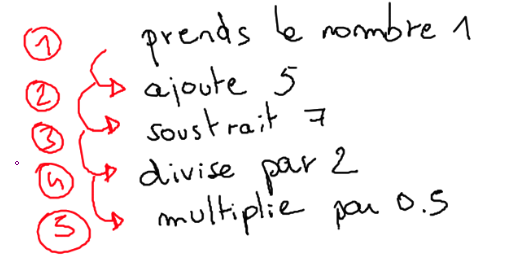 1 prends le nombre 1
2 ajoute 5
3 soustrait 7
4 divise par 2
5 multiplie par 0.5